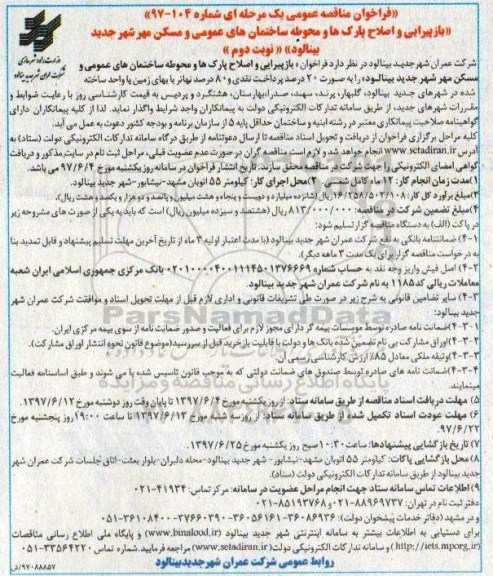 «فراخوان مناقصه عمومی یک مرحله ای شماره ۱۰۴-۹۷»
«بازپیرایی و اصلاح پارک ها و محوطه ساختمان های عمومی و مسکن مهر شهر جدید
بینالود» « نوبت دوم »
وزارت راه و شهرسازی
شرکت عمران شهر جدید بینالود
شرکت عمران شهر جدید بینالود در نظر دارد فراخوان « بازپیرایی و اصلاح پارک ها و محوطه ساختمان های عمومی و
مسکن مهر شهر جدید بینالود» را به صورت ۲۰ درصد پرداخت نقدی و ۸۰ درصد تهاتر با بهای زمین یا واحد ساخته
شده در شهرهای جدید بینالود، گلبهار، پرند، سهند، صدرا، بهارستان، هشتگرد و پردیس به قیمت کارشناسی روز با رعایت ضوابط و
مقررات شهرهای جدید، از طریق سامانه تدارکات الکترونیکی دولت به پیمانکاران واجد شرایط واگذار نماید. لذا از کلیه پیمانکاران دارای
گواهینامه صلاحیت پیمانکاری معتبر در رشته ابنیه و ساختمان حداقل پایه ۵ از سازمان برنامه و بودجه کشور دعوت به عمل می آید.
کلیه مراحل برگزاری فراخوان از دریافت و تحویل اسناد مناقصه تا ارسال دعوتنامه از طریق درگاه سامانه تدارکات الکترونیکی دولت (ستاد) به
آدرس www.setadiran.ir انجام خواهد شد و لازم است مناقصه گران در صورت عدم عضویت قبلی، مراحل ثبت نام در سایت مذکور و دریافت
گواهی امضای الکترونیکی را جهت شرکت در مناقصه محقق سازند. تاریخ انتشار فراخوان در سامانه روز یکشنبه مورخ ۹۷/۶/۴ می باشد.
۱)مدت زمان انجام کار: ۱۲ ماه کامل شمسی ۲)محل اجرای کار: کیلومتر ۵۵ اتوبان مشهد-نیشابور-شهر جدید بینالود.
۳)مبلغ برآورد کل کار: ۱۶/۲۵۸/۵۰۲/۱۰۸ ریال (شانزده میلیارد و دویست و پنجاه و هشت میلیون و پانصد و دو هزار و یکصد و هشت ریال).
۴)مبلغ تضمین شرکت در مناقصه: ۸۱۳/۰۰۰/۰۰۰ ریال (هشتصد و سیزده میلیون ریال) است که باید به یکی از صورت های مشروحه زیر
در پاکت (الف) به دستگاه مناقصه گزار تسلیم شود:
۴-۱) ضمانتنامه بانکی به نفع شرکت عمران شهر جدید بینالود (با مدت اعتبار اولیه ۳ ماه از تاریخ آخرین مهلت تسلیم پیشنهاد و قابل تمدید بنا
به درخواست مناقصه گزار برای یک مدت ۳ ماهه دیگر).
۴-۲) اصل فیش واریز وجه نقد به حساب شماره ۰۲۰۱۰۰۰۰۴۰۰۱۱۱۴۵۰۱۳۷۶۶۶۹ بانک مرکزی جمهوری اسلامی ایران شعبه
معاملات ریالی کد ۱۱۸۵ به نام شرکت عمران شهر جدید بینالود.
۴-۳) سایر تضامین قانونی به شرح زیر در صورت طی تشریفات قانونی و اداری لازم قبل از مهلت تحویل اسناد و موافقت شرکت عمران شهر
جدید بینالود:
۴-۳-۱)ضمانت نامه صادره توسط موسسات بیمه گر دارای مجوز لازم برای فعالیت و صدور ضمانت نامه از سوی بیمه مرکزی ایران.
۴-۳-۲)اوراق مشارکت بی نام تضمین شده بانک ها و دولت با قابلیت بازخرید قبل از سررسید(موضوع قانون نحوه انتشار اوراق مشارکت).
۴-۳-۳)وثیقه ملکی معادل ۸۵٪ ارزش کارشناسی رسمی آن.
۴-۳-۴)ضمانت نامه های صادره توسط صندوق های ضمانت دولتی که به موجب قانون تاسیس شده یا می شوند و طبق اساسنامه فعالیت
مینمایند.
۵) مهلت دریافت اسناد مناقصه از طریق سامانه ستاد: از روز یکشنبه مورخ ۱۳۹۷/۶/۴ تا پایان وقت روز دوشنبه مورخ ۱۳۹۷/۶/۱۲.
۶) مهلت عودت اسناد تکمیل شده از طریق سامانه ستاد: از روز سه شنبه مورخ ۱۳۹۷/۶/۱۳ تا ساعت ۱۹:۰۰ روز پنجشنبه مورخ
۹۷/۶/۲۲.
۷) تاریخ بازگشایی پیشنهادها: ساعت ۱۰:۳۰ صبح روز یکشنبه مورخ ۱۳۹۷/۶/۲۵.
۸) محل بازگشایی پاکات: کیلومتر ۵۵ اتوبان مشهد-نیشابور- شهر جدید بینالود-محله دلبران-بلوار بعثت-اتاق جلسات شرکت عمران شهر
جدید بینالود از طریق سامانه تدارکات الکترونیکی دولت (ستاد).
۹) اطلاعات تماس سامانه ستاد جهت انجام مراحل عضویت در سامانه: مرکز تماس: ۴۱۹۳۴-۰۲۱
دفتر ثبت نام در تهران: ۸۸۹۶۹۷۳۷-۰۲۱ و ۸۵۱۹۳۷۶۸-۰۲۱
و در مشهد (دفاتر خدمات پیشخوان دولت): ۳۶۰۸۶۹۳۶-۳۶۰۵۶۱۶۱-۳۷۶۶۰۳۹۰-۳۶۱۰۸۴۰۰-۰۵۱
برای دستیابی به اطلاعات بیشتر به سامانه اینترنتی شهر جدید بینالود (www.binalood.ir) و پایگاه ملی اطلاع رسانی مناقصات
(http://iets.mporg.ir) و سامانه تدارکات الکترونیکی دولت (www.setadiran.ir) مراجعه فرمایید. شماره تماس ۳۳۵۶۴۲۲۰-۰۵۱
روابط عمومی شرکت عمران شهر جدید بینالود
۹۷۰۸۸۸۵۷/ش
ParsNamadData
پایگاه اطلاع رسانی مناقصه و مزایده